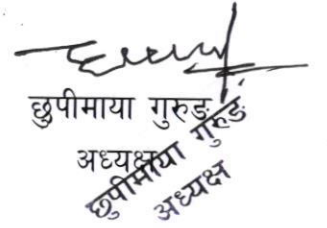 छुपीमाया गुरुङ
अध्यक्ष
छुपीमाया गुरुङ
अध्यक्ष